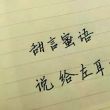 甜言蜜语
说给左耳